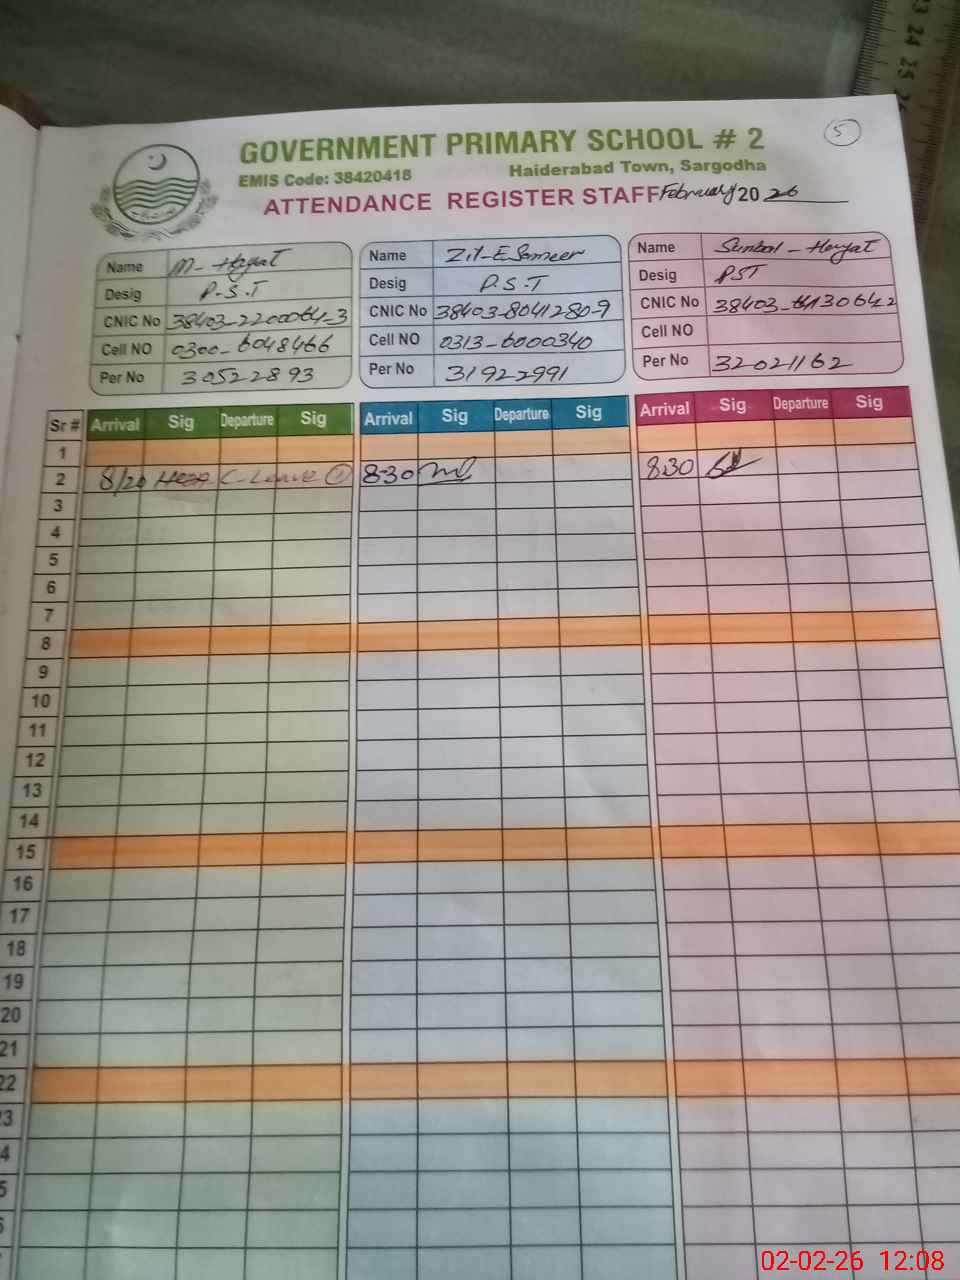 5
GOVERNMENT PRIMARY SCHOOL # 2
EMIS Code: 38420418 Haiderabad Town, Sargodha
ATTENDANCE REGISTER STAFF February 20 26
Name M-Hayat
Desig P.S.T
CNIC No 38403-2200064-3
Cell NO 0300-6048466
Per No 30522893
Name Zil-E Sameer
Desig P.S.T
CNIC No 38403-8041280-9
Cell NO 0313-6000340
Per No 31922991
Name Sunbal-Hayat
Desig PST
CNIC No 38403-6130642
Cell NO
Per No 32021162
Sr # Arrival Sig Departure Sig Arrival Sig Departure Sig Arrival Sig Departure Sig
1
2 8/20 C-Leave 1 8-30 8.30
3
4
5
6
7
8
9
10
11
12
13
14
15
16
17
18
19
20
21
22
3
4
5
23 24 25
02-02-26 12:08